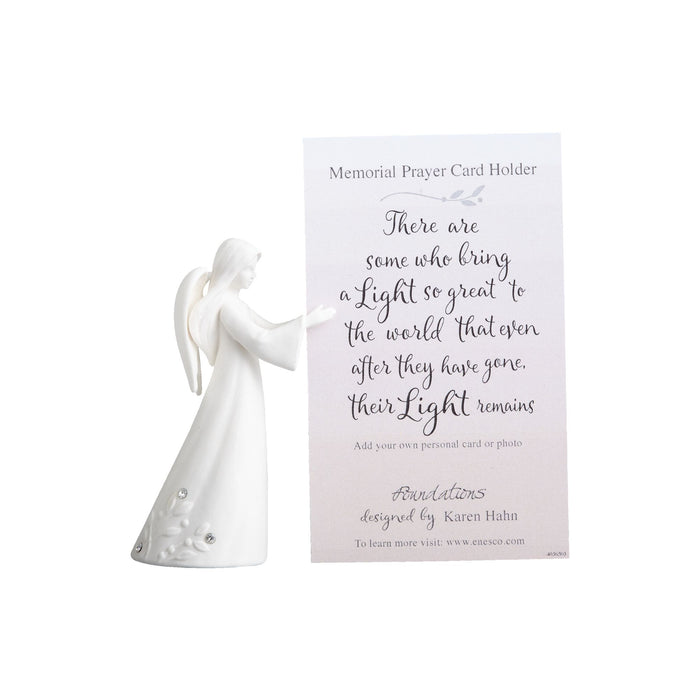 Memorial Prayer Card Holder
There are
some who bring
a Light so great to
the world that even
after they have gone,
their Light remains
Add your own personal card or photo
foundations
designed by Karen Hahn
To learn more visit: www.enesco.com